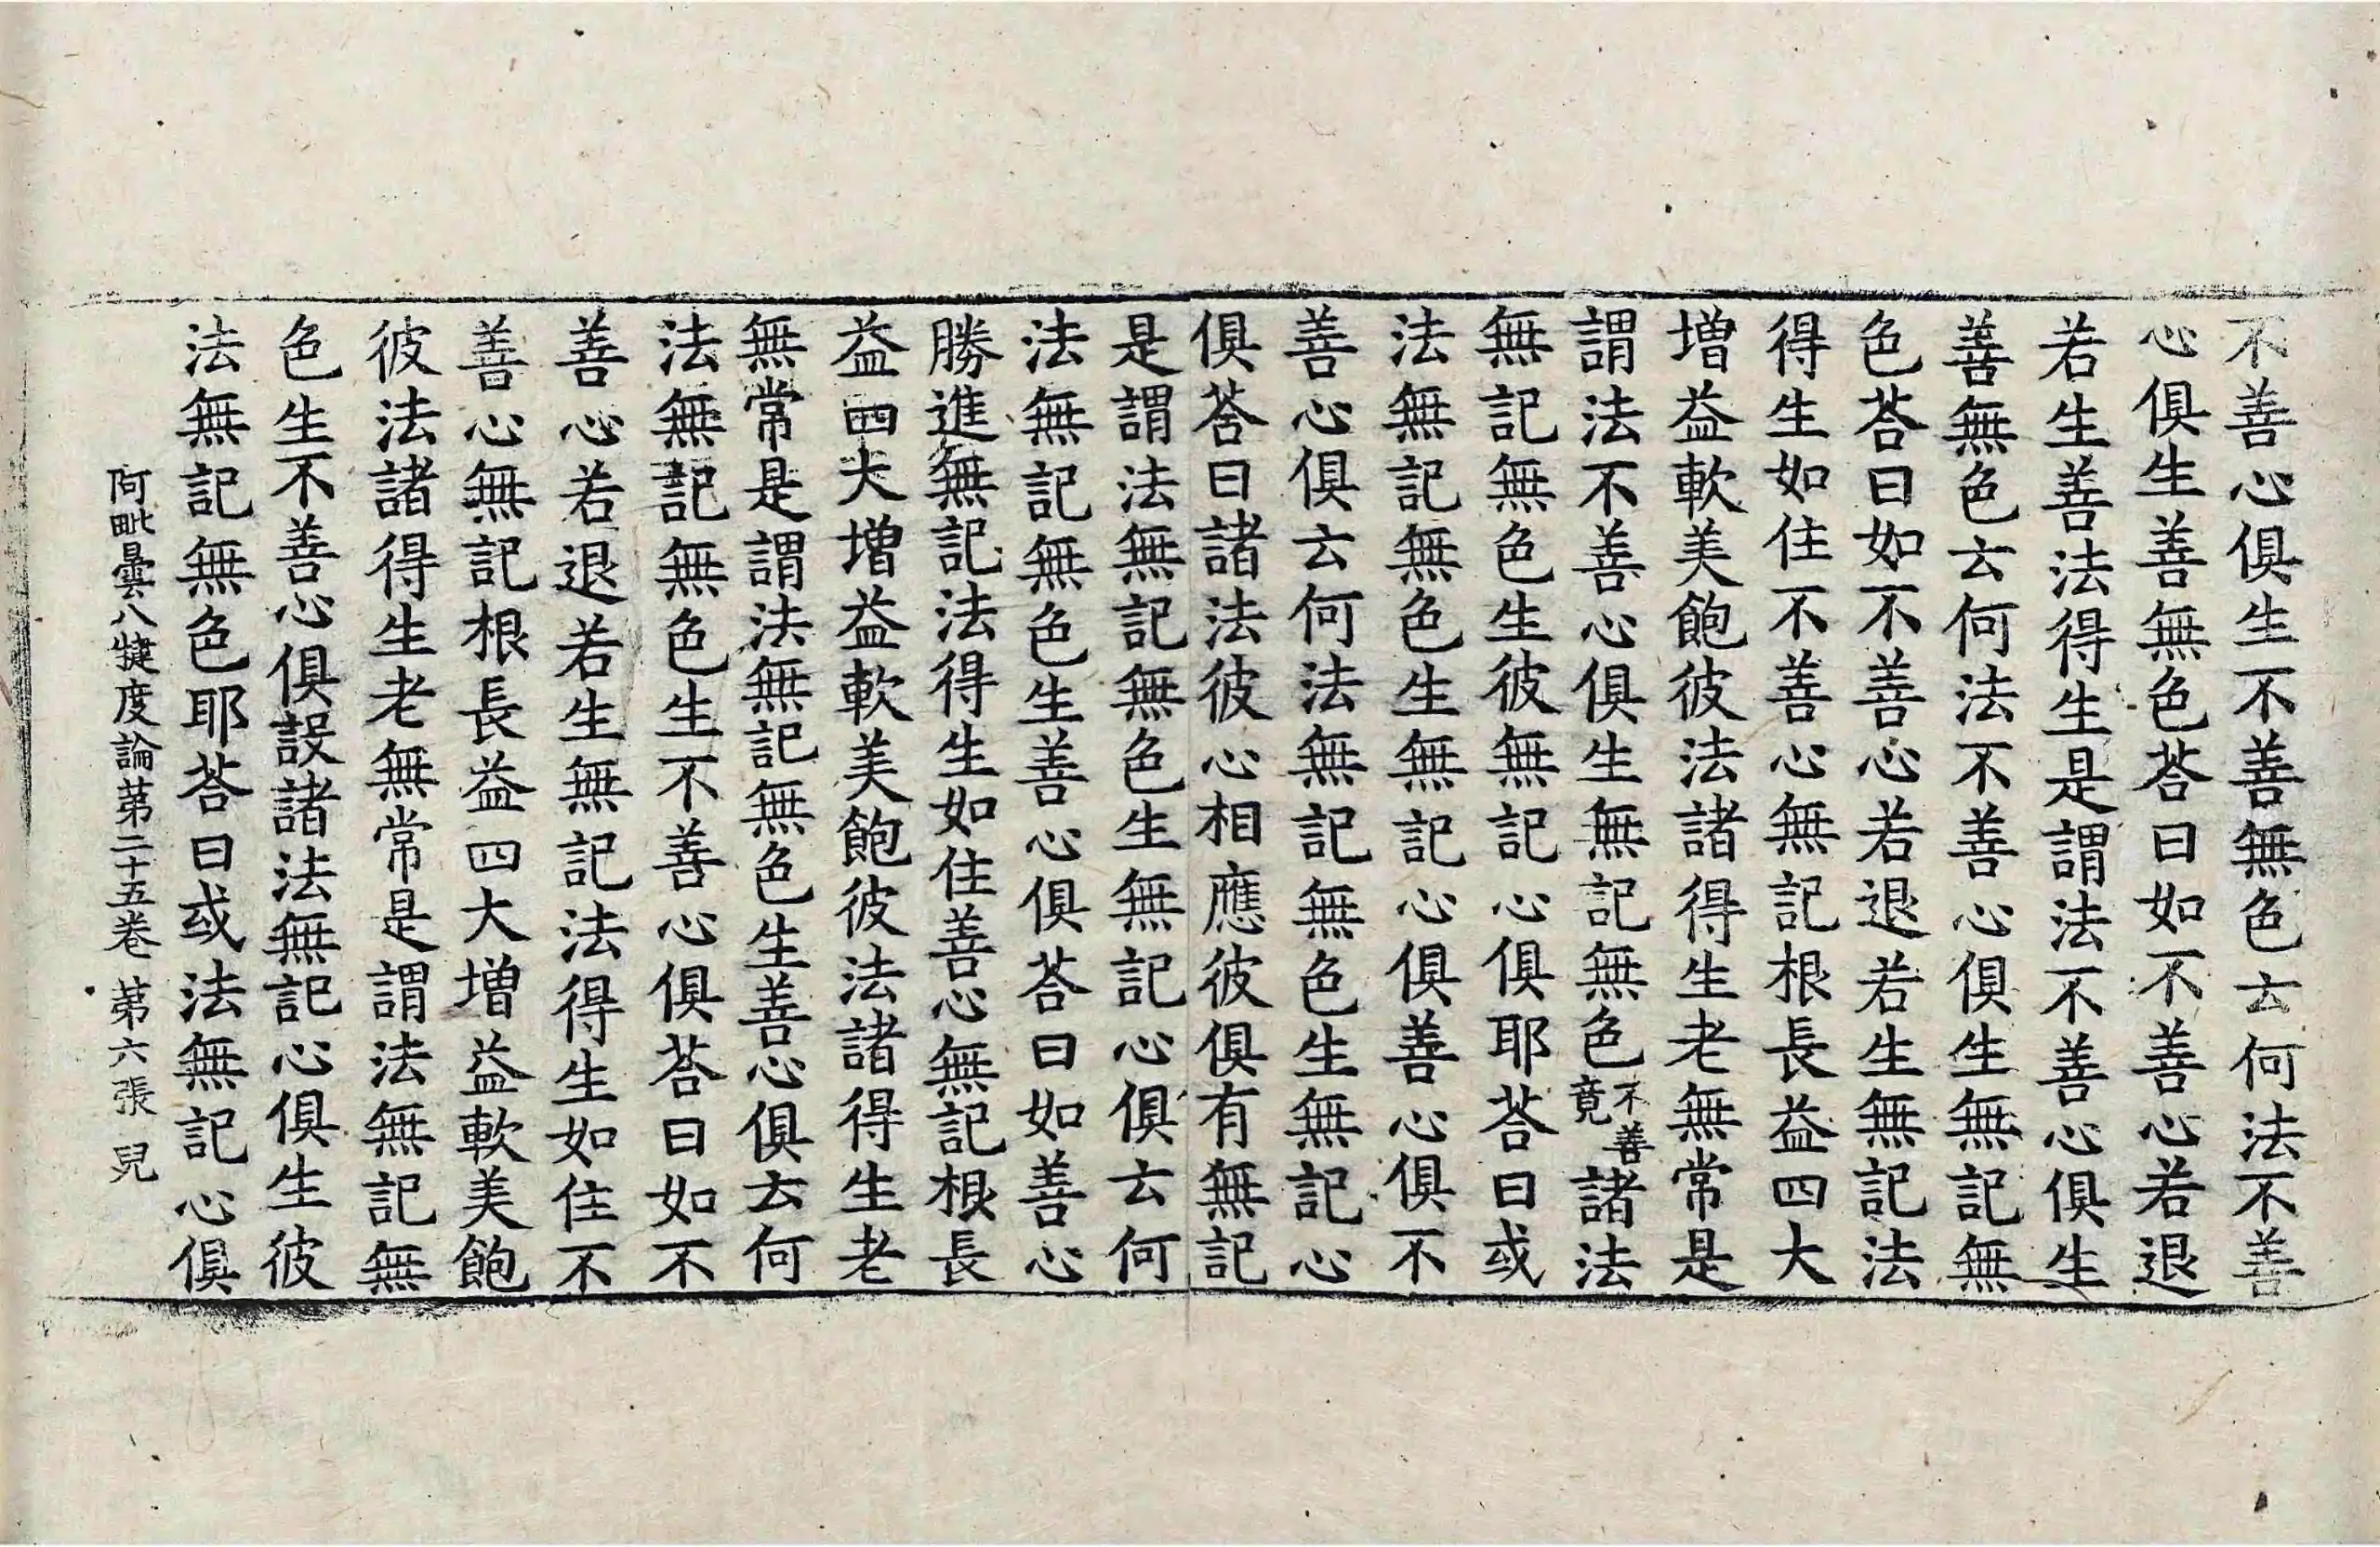 不善心俱生不善無色云何法不善
心俱生善無色荅曰如不善心若退
若生善法得生是謂法不善心俱生
善無色云何法不善心俱生無記無
色荅曰如不善心若退若生無記法
得生如住不善心無記根長益四大
增益軟美飽彼法諸得生老無常是
謂法不善心俱生無記無色不善竟諸法
無記無色生彼無記心俱耶荅曰或
法無記無色生無記心俱善心俱不
善心俱云何法無記無色生無記心
俱荅曰諸法彼心相應彼俱有無記
是謂法無記無色生無記心俱云何
法無記無色生善心俱荅曰如善心
勝進無記法得生如住善心無記根長
益四大增益軟美飽彼法諸得生老
無常是謂法無記無色生善心俱云何
法無記無色生不善心俱荅曰如不
善心若退若生無記法得生如住不
善心無記根長益四大增益軟美飽
彼法諸得生老無常是謂法無記無
色生不善心俱設諸法無記心俱生彼
法無記無色耶荅曰或法無記心俱
阿毗曇八犍度論苐二十五卷 苐六張 皃